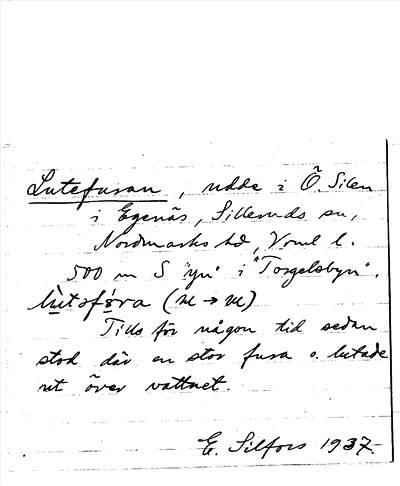 Lutefuran, udde i Ö. Silen
i Egenäs, Silleruds sn,
Nordmarks hd, Vrml l.
500 m S "yn" i "Torgelsbyn".
lùtəfúra (u → u)
Tills för någon tid sedan
stod där en stor fura o. lutade
ut över vattnet.
E. Silfors 1937.